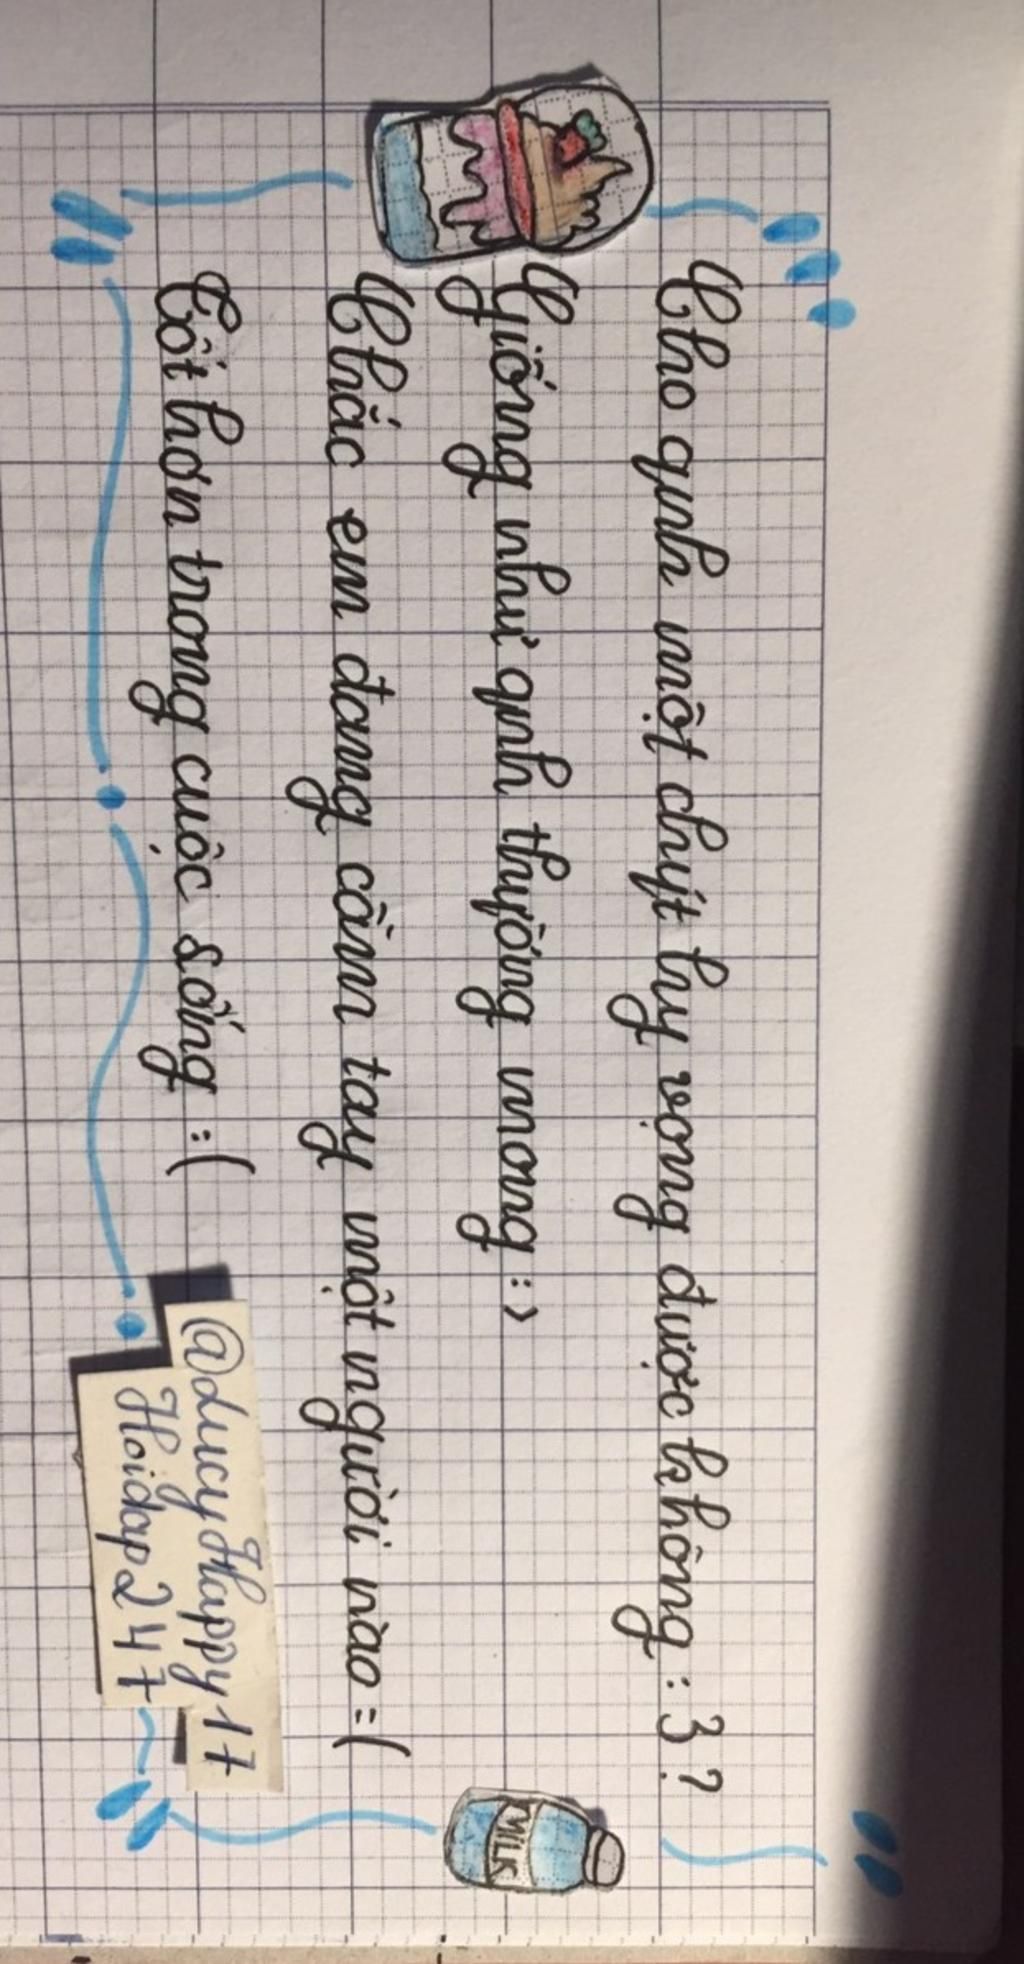 Cho qnh một chyt hy vọng được không : 3 ?
Giống như qnh thyờng mong : >
Chắc em đang cầm tay một người nào =(
Tốt hơn trong cuộc sống :(
@LucyHappy17
Hoidap247
MILK